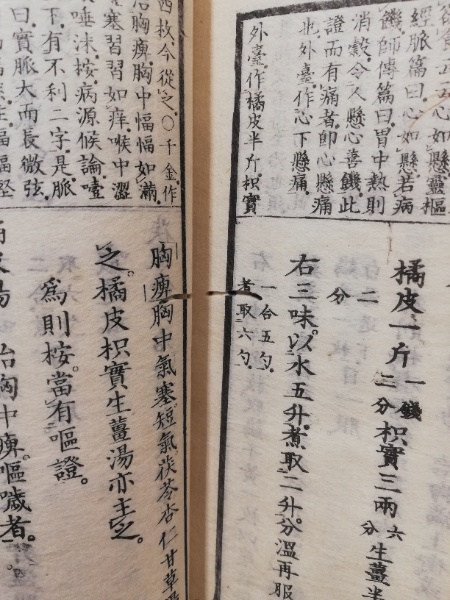 心如懸靈樞
經脈篇曰心如懸若病
饑師傳篇曰胃中熱則
消穀令人懸心善饑此
證而有痛者即心懸痛
也外臺作心下懸痛
外臺作橘皮半斤枳實
橘皮一斤一錢三分枳實三兩六分生薑半
二分
右三味。以水五升。煮取二升。分溫再服
一合五勺。
煮取六勺。
枚今從之。〇千金作
胸痺胸中愊愊如滿
塞習習如痒喉中澀
唾沫按病源候論噎
下有不利二字是脈
曰實脈大而長微弦
胸痺胸中氣塞短氣茯苓杏仁甘草
之。橘皮枳實生薑湯亦主之。
為則按。當有嘔證。
湯治胸中痺。嘔噦者。